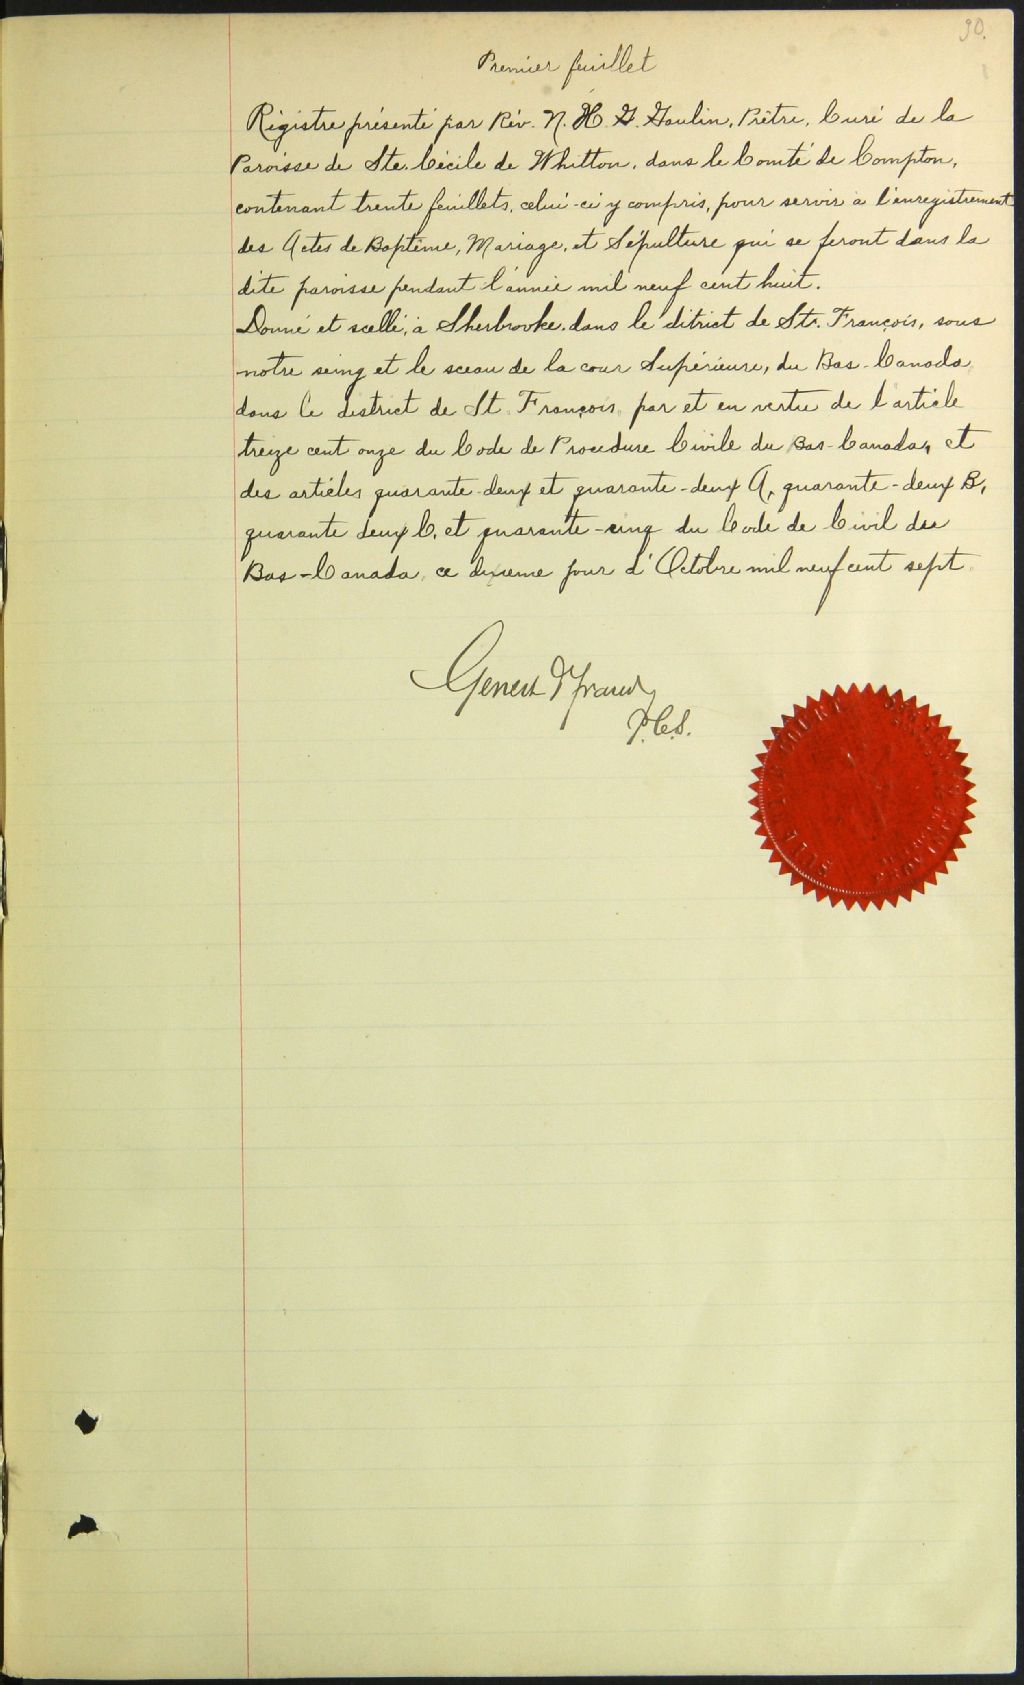 30.
Premier feuillet
Régistre présenté par Rév. N. H. G. Gaulin, Prêtre, Curé de la
Paroisse de Ste. Cécile de Whitton, dans le Comté de Compton,
contenant trente feuillets, celui-ci y compris, pour servir à l'enregistrement
des Actes de Baptême, Mariage, et Sépulture qui se feront dans la
dite paroisse pendant l'année mil neuf cent huit.
Donné et scellé, à Sherbrooke, dans le ditrict de St. François, sous
notre seing et le sceau de la cour Supérieure, du Bas-Canada
dans le district de St. François, par et en vertu de l'article
treize cent onze du Code de Procedure Civile du Bas-Canada, et
des articles quarante-deux et quarante-deux A, quarante-deux B,
quarante deux C, et quarante-cinq du Code de Civil du
Bas-Canada, ce dixieme jour d'Octobre mil neuf cent sept.
P.C.S.